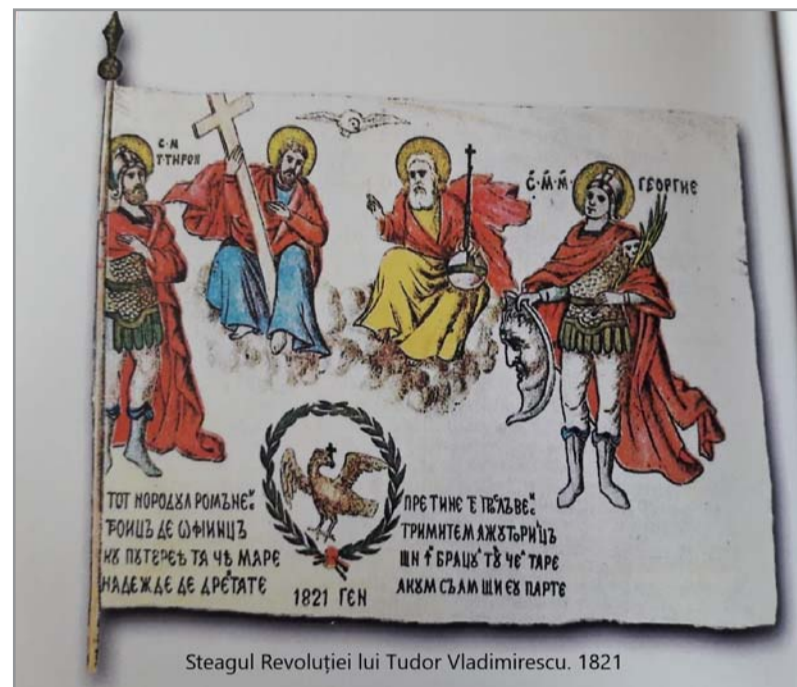 С·М
Т·ТИРОН
С̃·М̃·М̃· ГЕОРГИЕ
ТОТ НОРОДꙊЛ РОМѪНЕ
ДЕ ѠФІИНЦЪ
КꙊ ПꙊТЕРЕѢ ТА ЧѢ МАРЕ
НАДЕЖДЕ ДЕ ДРЕТАТЕ
1821 ГЕН
ПРЕ ТИНЕ
ТРИМИТЕМ АЖꙊТОРИЦЪ
ШИ БРАЦꙊ ТꙊ ЧЕ ТАРЕ
АКꙊМ СЪ АМ ШИ ЕꙊ ПАРТЕ
Steagul Revoluției lui Tudor Vladimirescu. 1821